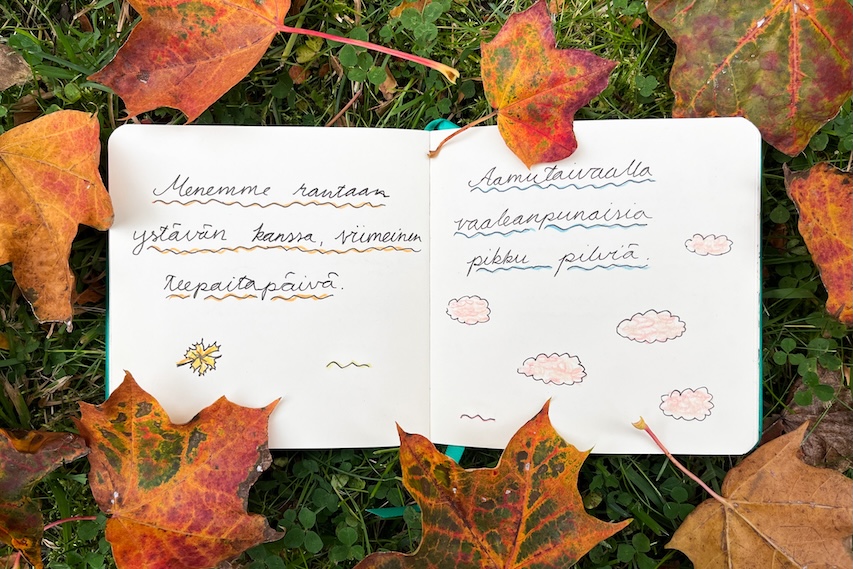 Menemme rantaan
ystävän kanssa, viimeinen
teepaitapäivä.
Aamutaivaalla
vaaleanpunaisia
pikku pilviä.